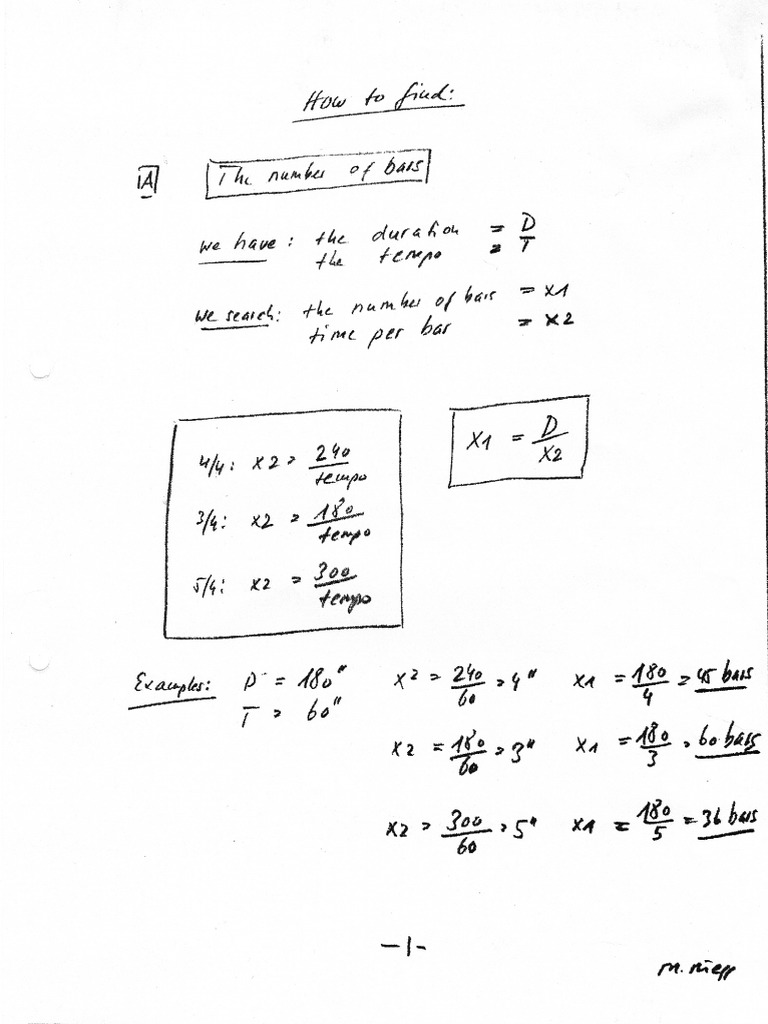 How to find:
1A The number of bars
we have: the duration = D
the tempo = T
we search: the number of bars = X1
time per bar = X2
4/4: X2 = 240/tempo
X1 = D/X2
3/4: X2 = 180/tempo
5/4: X2 = 300/tempo
Examples: D = 180" X2 = 240/60 = 4" X1 = 180/4 = 45 bars
T = 60"
X2 = 180/60 = 3" X1 = 180/3 = 60 bars
X2 = 300/60 = 5" X1 = 180/5 = 36 bars
-1-